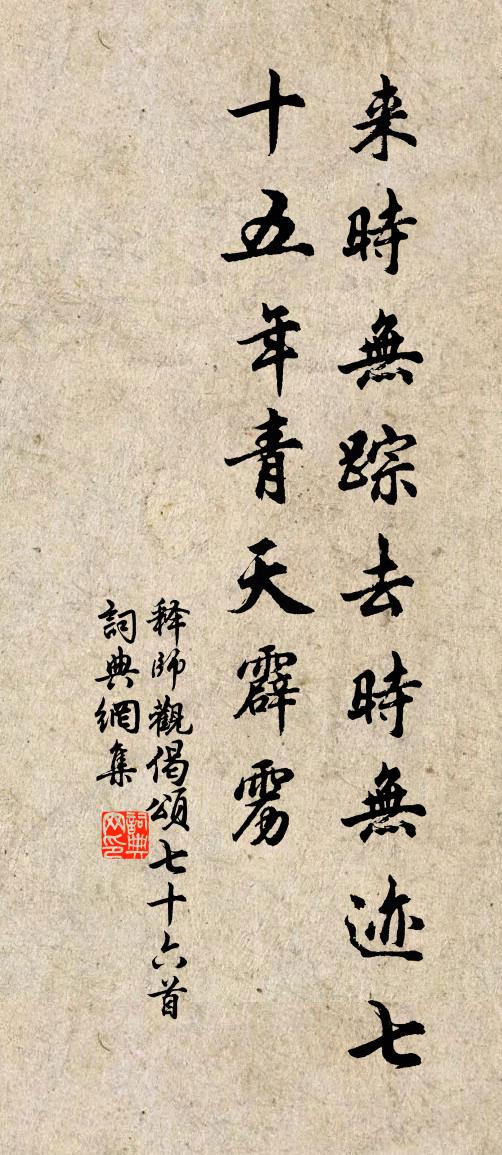 来時無踪去時無迹七
十五年青天霹雳
释師觀偈頌七十六首
詞典網集
詞典
网印